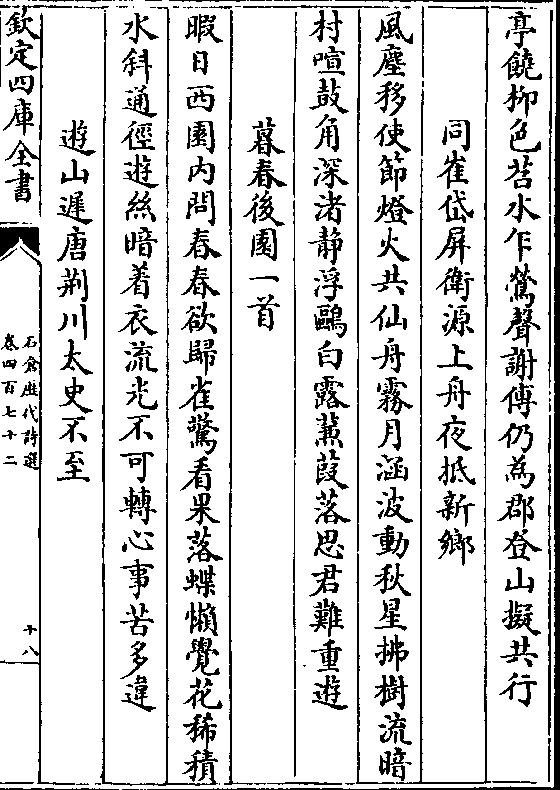 亭饒柳色苕水乍鶯聲謝傅仍為郡登山擬共行
同崔岱屏衛源上舟夜抵新鄉
風塵移使節燈火共仙舟霧月涵波動秋星拂樹流暗
村喧鼓角深渚静浮鷗白露蒹葭落思君難重遊
暮春後園一首
暇日西園内問春春欲歸雀驚看果落蝶懶覺花稀積
水斜通徑遊絲暗着衣流光不可轉心事苦多違
遊山遲唐荆川太史不至
欽定四庫全書
石倉歴代詩選
卷四百七十二
十八